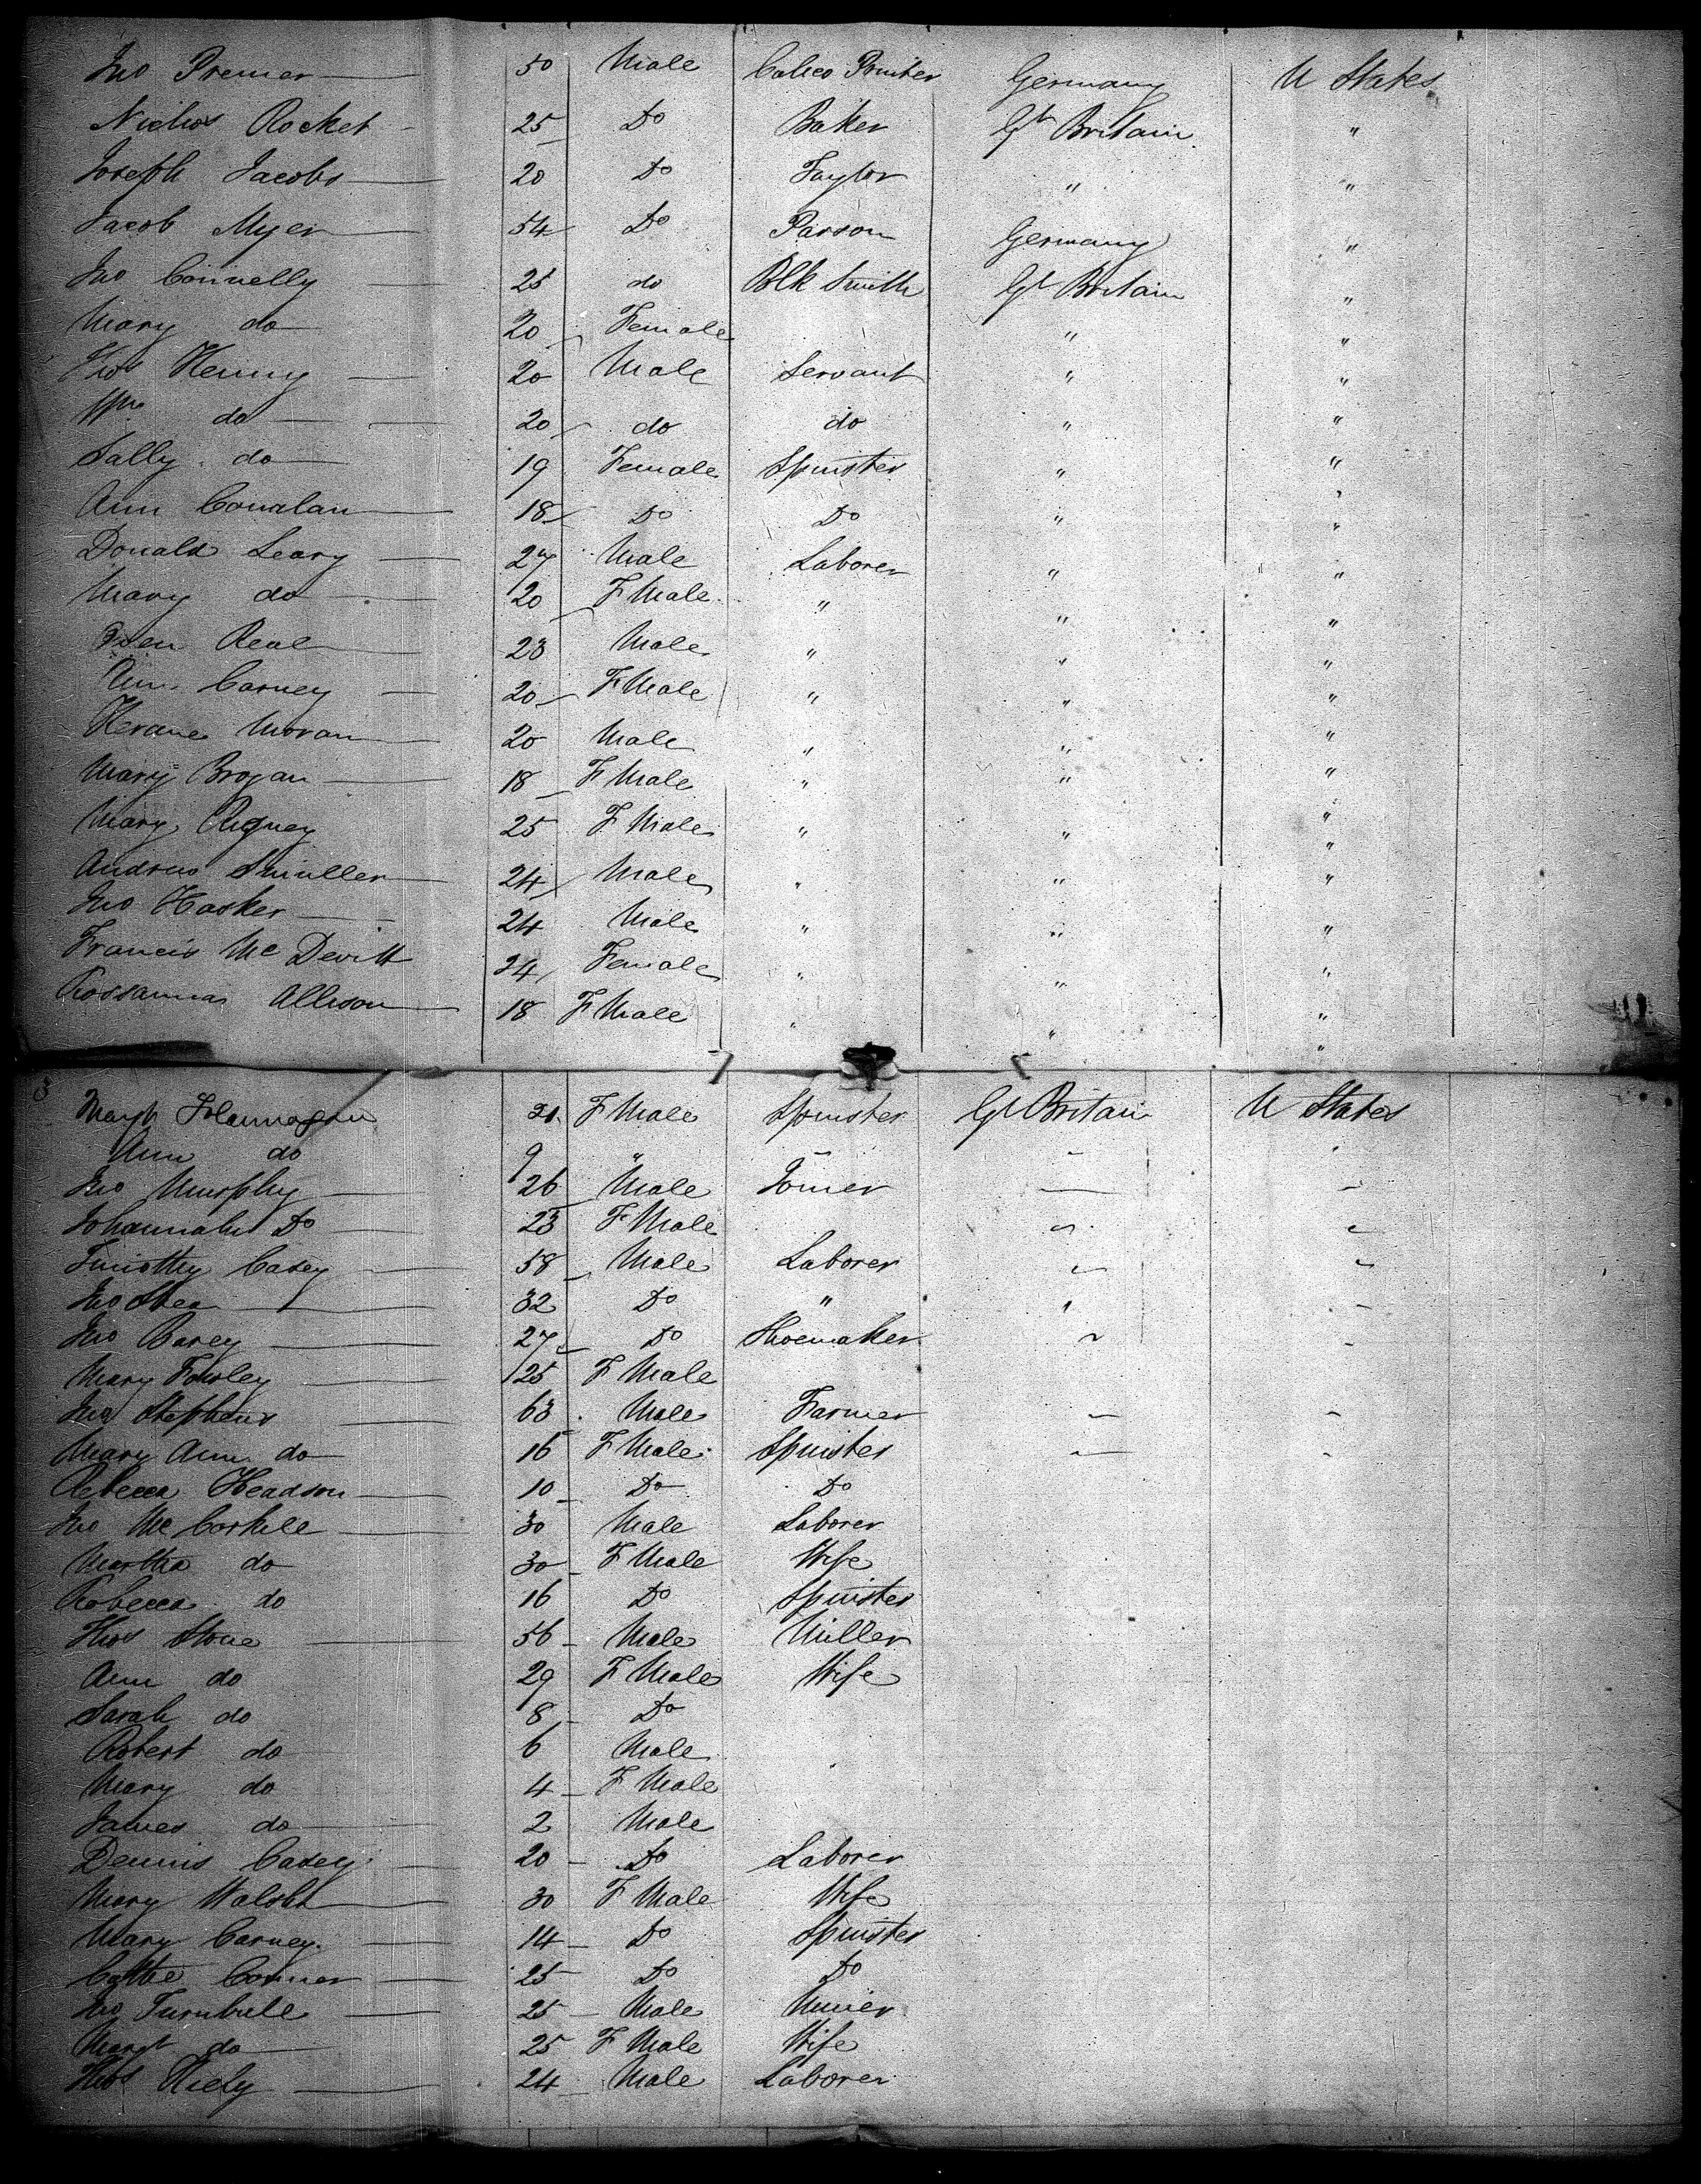 Jno Premer 50 Male Calico Printer Germany U States
Nichos Rocket 25 Do Baker Gt Britain "
Joseph Jacobs 20 Do Taylor " "
Jacob Myer 54 Do Parson Germany "
Jno Connelly 25 do Blk Smith Gt Britain "
Mary do 20 Female " "
Thos Heniny 20 Male Servant " "
Wm do 20 do do " "
Sally do 19 Female Spinster " "
Ann Conalan 18 Do Do " "
Donald Leary 27 Male Laborer " "
Mary do 20 F Male " " "
Real 23 Male " " "
Ann Carney 20 F Male " " "
Moran 20 Male " " "
Mary Brogan 18 F Male " " "
Mary Rigney 25 F Male " " "
Andrew Smuller 24 Male " " "
Jno Hasker 24 Male " " "
Francis McDevitt 24 Female " " "
Rossanna Allison 18 F Male " " "
3
Margt 21 F Male Spinster Gt Britain U States
Ann do 9 " " "
Jno Murphy 26 Male Joiner " "
Johannah Do 23 F Male " "
Timothy Casey 58 Male Laborer " "
Jno Shea 32 Do " " "
Jno Carey 27 Do Shoemaker " "
Mary Fowley 25 F Male
Jno Stephens 63 Male Farmer " "
Mary Ann do 16 F Male Spinster " "
Rebecca Headson 10 Do Do
Jno McCorkile 30 Male Laborer
Martha do 30 F Male Wife
Robecca do 16 Do Spinster
Thos Stone 56 Male Miller
Ann do 29 F Male Wife
Sarah do 8 Do
Robert do 6 Male
Mary do 4 F Male
James do 2 Male
Dennis Casey 20 Do Laborer
Mary Walsh 30 F Male Wife
Mary Carney 14 Do Spinster
Cathe Conner 25 Do Do
Jno Turnbull 25 Male Miner
Margt do 25 F Male Wife
Thos Kiely 24 Male Laborer